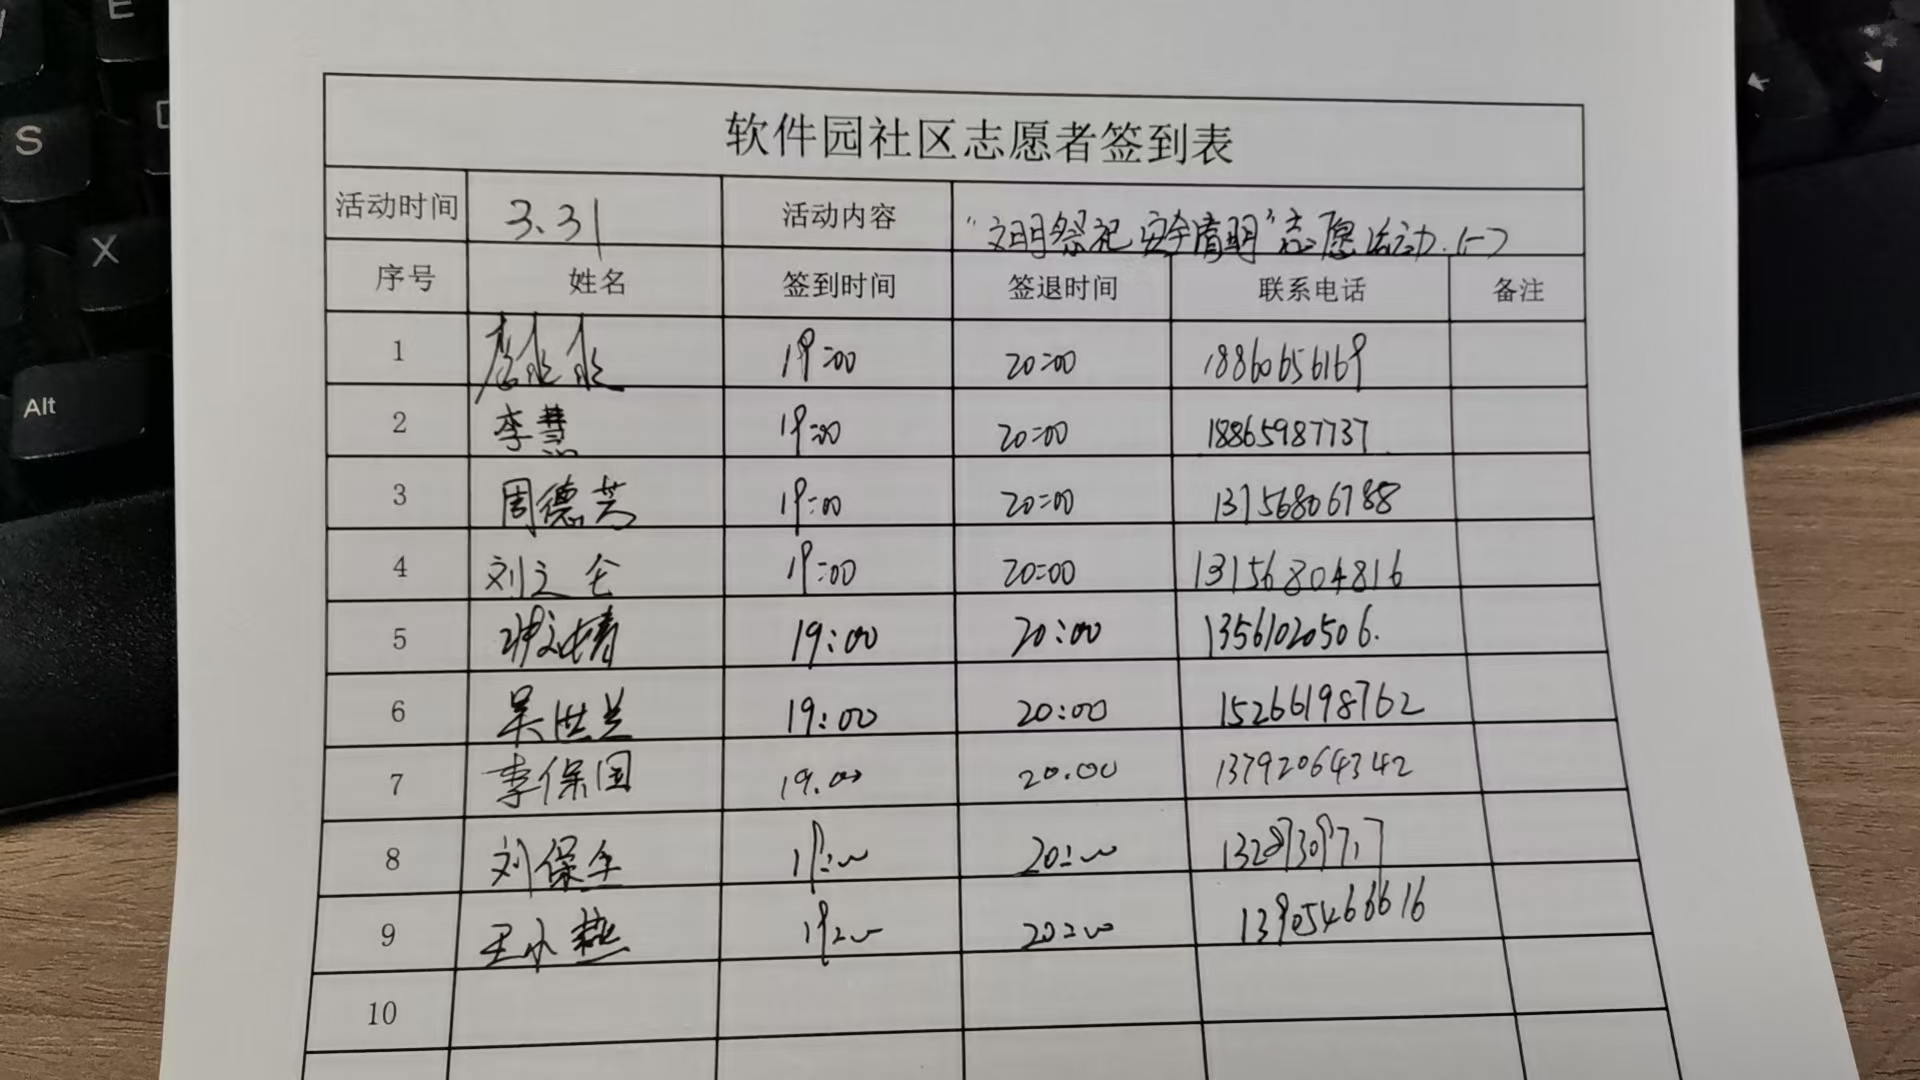 软件园社区志愿者签到表
活动时间 3.31 活动内容 “文明祭祀 安全清明”志愿活动.(一)
序号 姓名 签到时间 签退时间 联系电话 备注
1 19:00 20:00 18860656169
2 李慧 19:00 20:00 18865987737
3 周德芳 19:00 20:00 13156806788
4 刘立仝 19:00 20:00 13156804816
5 19:00 20:00 13561020506.
6 吴洪兰 19:00 20:00 15266198762
7 李保国 19.00 20.00 13792064342
8 刘保全 19:00 20:00
9 王小燕 19:00 20:00 13905466616
10
S
X
Alt
E